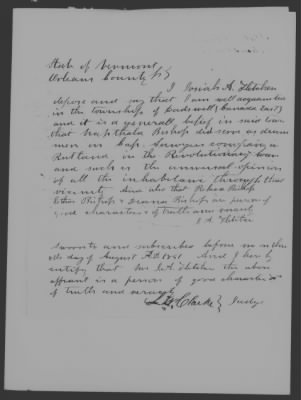 State of Vermont
Orleans County SS
I Josiah A. Fletcher
depose and say that I am well acquainted
in the township of Eudswell (Canada East)
and it is a generall belief in said town
that Napthala Bishop did serve as drum
mer in Cap. Sawyers company
Rutland in the Revolutionary war
and such is the universal opinion
of all the inhabitants through that
vicinity And also that Bishop
Ether Bishop & Bishop are persons of
good character & of truth and
J A Fletcher
Sworn and subscribed before me
day of August A.D. 1851 And I her by
certify that Mr J A Fletcher the above
affiant is a person of good character
of truth and
Clarke Judge